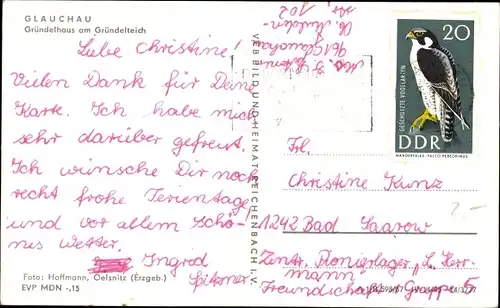 GLAUCHAU
Gründelhaus am Gründelteich
Liebe Christine!
Vielen Dank für Deine
Karte. Ich habe mich
sehr darüber gefreut.
Ich wünsche Dir noch
recht frohe Ferientage
und vor allem schö-
nes Wetter.
Ingrid
Foto: Hoffmann, Oelsnitz (Erzgeb.)
EVP MDN -,15
VEB BILD UND HEIMAT REICHENBACH I. V.
102
20
GESCHÜTZTE VOGELARTEN
DDR
WANDERFALKE FALCO PEREGRINUS
Frl.
Christine Kunz
1242 Bad Saarow
Zentr. Pionierlager „L. Herr-
mann"
Freundschaft Gruppe 5
2.-